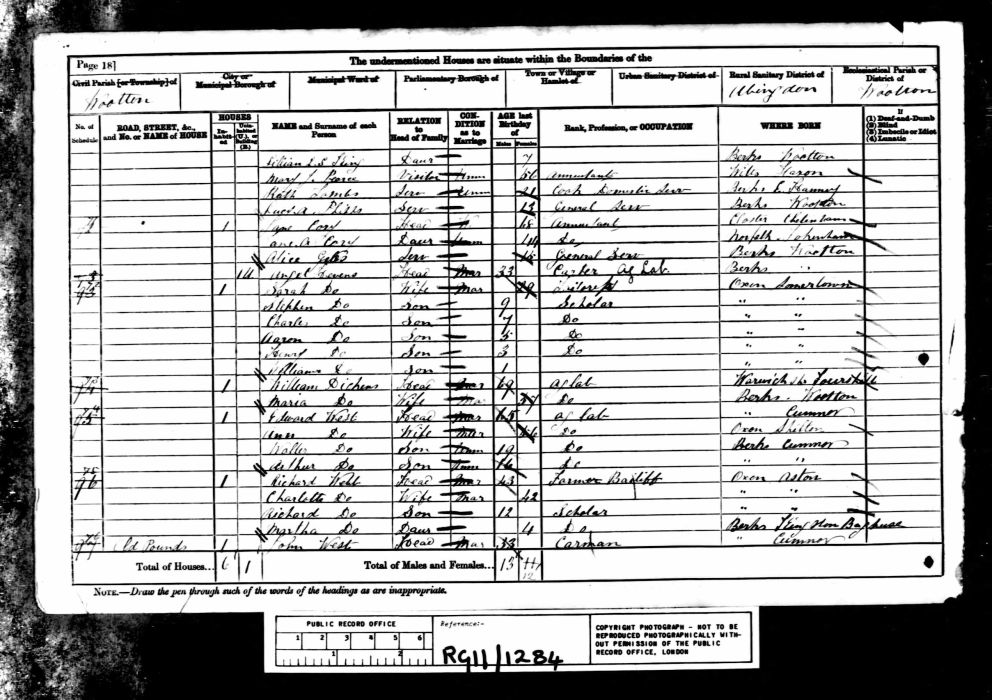 Page 18]
The undermentioned Houses are situate within the Boundaries of the
Civil Parish [or Township] of
City or Municipal Borough of
Municipal Ward of
Parliamentary Borough of
Town or Village or Hamlet of
Urban Sanitary District of
Rural Sanitary District of
Ecclesiastical Parish or District of
Wootton Abingdon Wootton
No. of Schedule
ROAD, STREET, &c., and No. or NAME of HOUSE
HOUSES
Inhabited
Uninhabited (U.), or Building (B.)
NAME and Surname of each Person
RELATION to Head of Family
CONDITION as to Marriage
AGE last Birthday of
Males Females
Rank, Profession, or OCCUPATION
WHERE BORN
If
(1) Deaf-and-Dumb
(2) Blind
(3) Imbecile or Idiot
(4) Lunatic
Daur 7 Berks Wootton
Visitor Unm 56 Annuitant Wilts
Serv Unm 21 Cook Domestic Serv Berks E. Hanney
Serv 13 General Serv Berks Wootton
1 Cory Head W 68 Annuitant Cheltenham
A Cory Daur Unm 44 Do Norfolk
Alice Serv 15 General Serv Berks Wootton
1U Angel Head Mar 33 Carter Ag Lab Berks "
1 Sarah Do Wife Mar 29 Oxon Somertown
Stephen Do Son 9 Scholar " "
Charles Do Son 7 Do " "
Aaron Do Son 5 Do " "
Henry Do Son 3 Do " "
William Do Son 1 " "
1 William Dickens Head Mar 69 Ag lab Warwick
Maria Do Wife Mar Do Berks Wootton
1 Edward West Head Mar 65 Ag lab " Cumnor
Ann Do Wife Mar 66 Do Oxon
Walter Do Son Unm 19 Do Berks Cumnor
Arthur Do Son Unm 16 Do " "
76 1 Richard Webb Head Mar 43 Farmer Bailiff Oxon Aston
Charlotte Do Wife Mar 42 " "
Richard Do Son 12 Scholar " "
Martha Do Daur 4 Do Berks
Old Pounds 1 John West Head Mar 33 Carman " Cumnor
Total of Houses... 6 1
Total of Males and Females... 15 11
12
NOTE.—Draw the pen through such of the words of the headings as are inappropriate.
PUBLIC RECORD OFFICE
1 2 3 4 5 6
1 2
Reference:-
RG11/1284
COPYRIGHT PHOTOGRAPH - NOT TO BE
REPRODUCED PHOTOGRAPHICALLY WITH-
OUT PERMISSION OF THE PUBLIC
RECORD OFFICE, LONDON